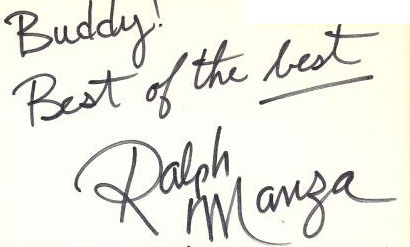 Buddy!
Best of the best
Ralph
Manza